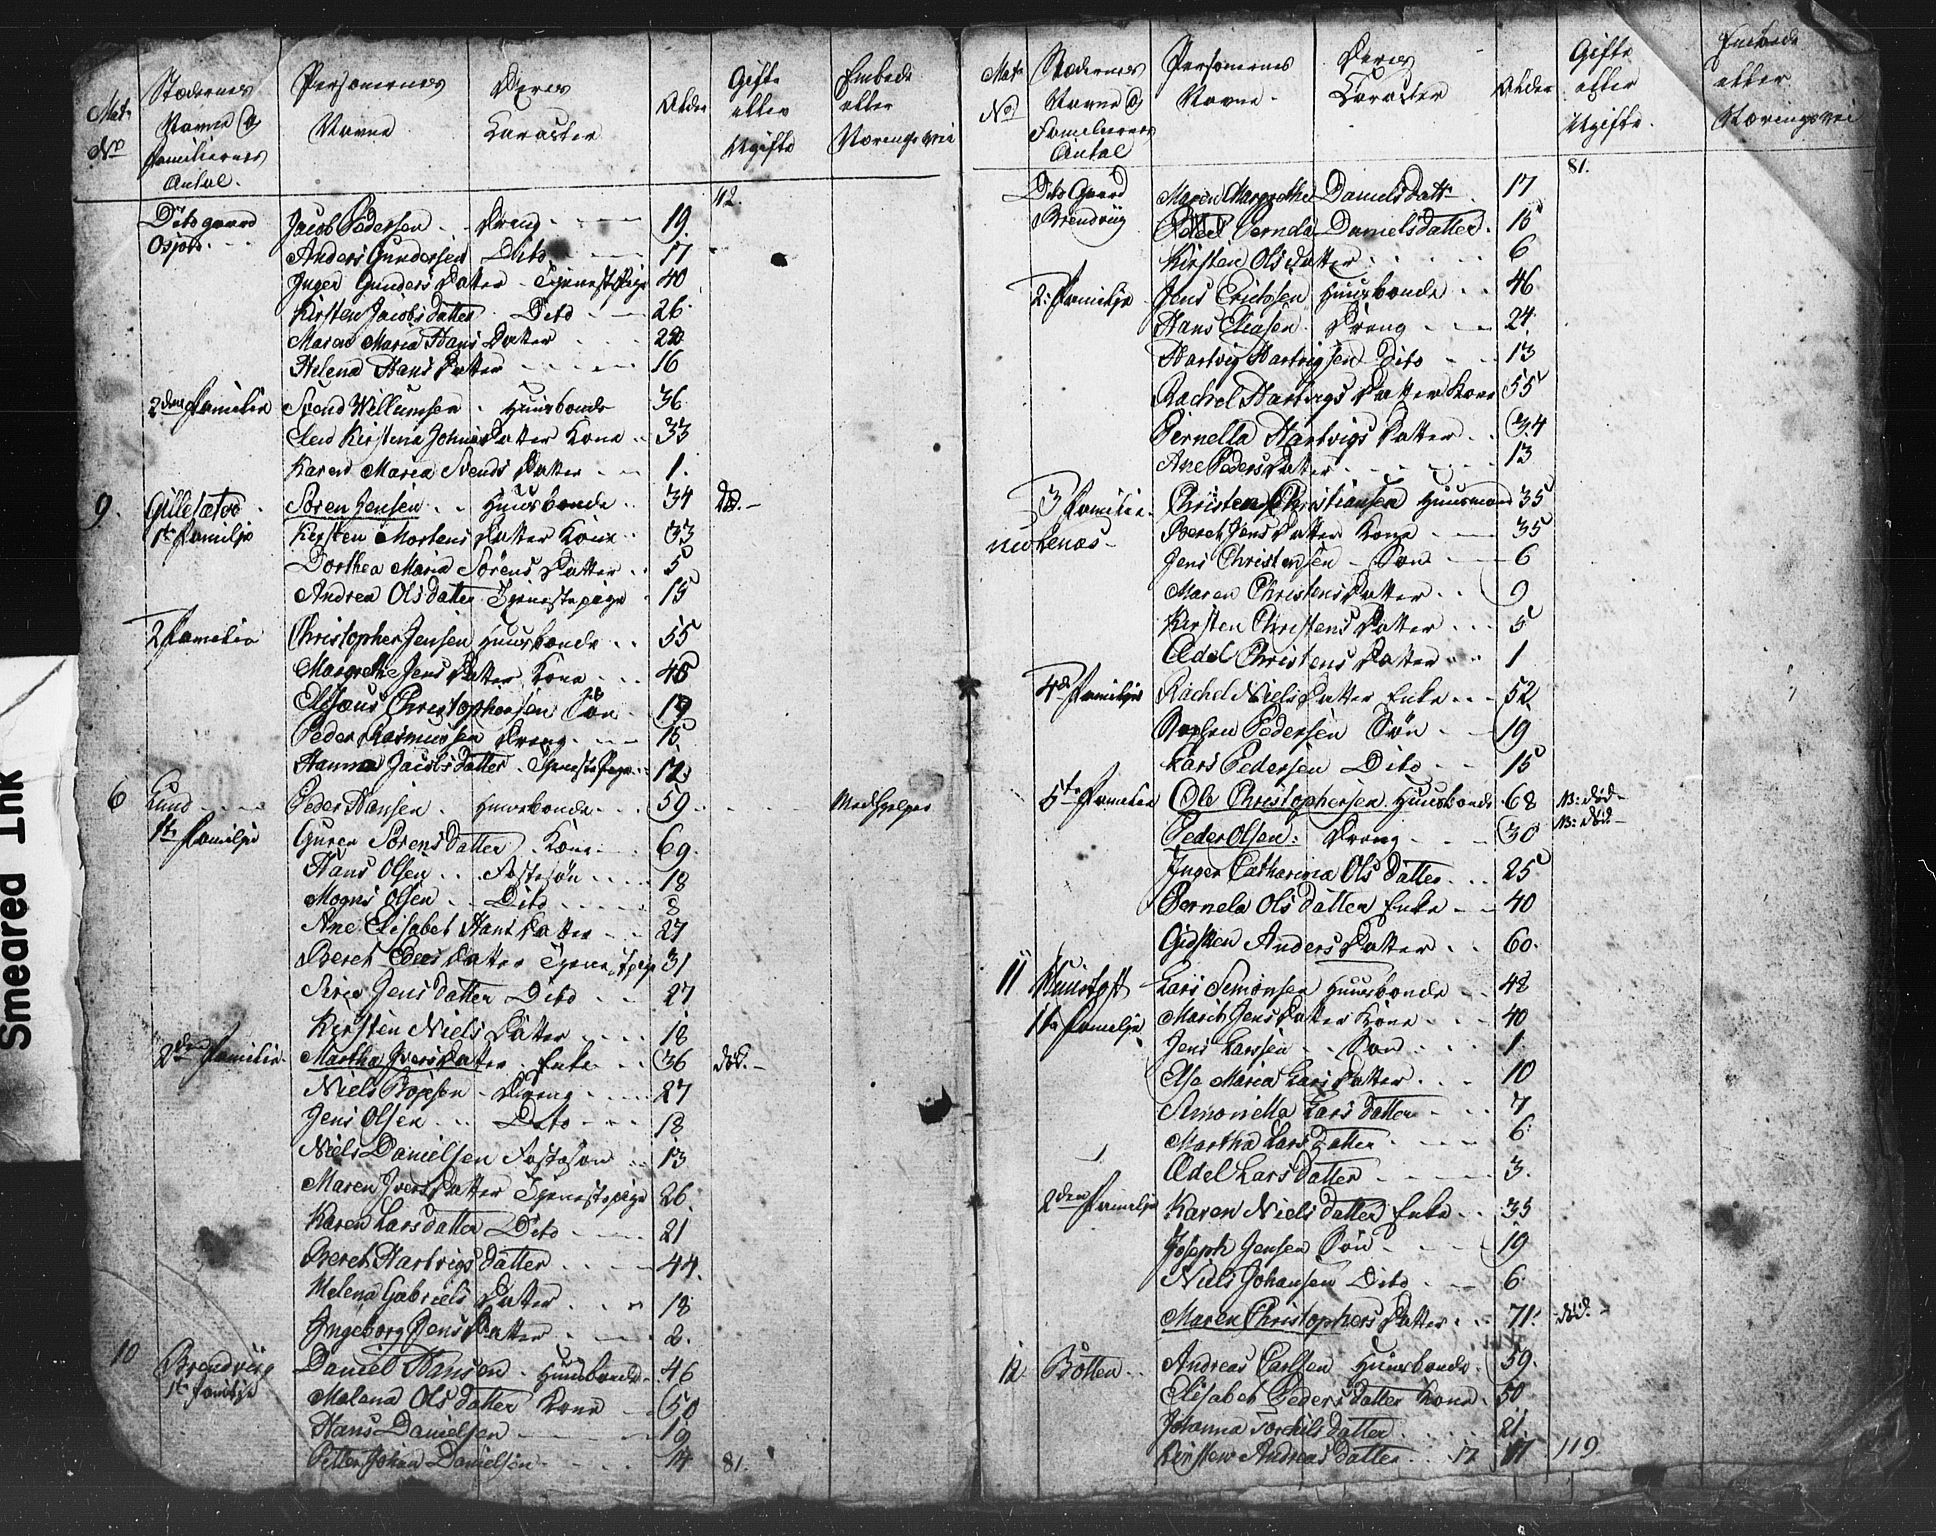 Smeared Ink
Mat. No
Stædernes Navne og Familiernes Antal.
Personernes Navne
Deres Karacter
Alder
Gifte eller Ugifte
Embede eller Næringsvei
42.
Dito gaard Jacob Pedersen Dreng 19.
Anders Gundersen Dito 17
Inger Gunders Datter Tjenestepige 40
Kirsten Jacobs datter Dito 26
Maren Maria Hans Datter
Helena Hans Datter 16
2den Familie Svend Willumsen Huusbonde 36
Elen Kirstina Johns Datter Kone 33
Karen Maria Svends Datter 1.
9. Gilletətvo Søren Jensen Huusbonde 34 Død.
1te Familje Kirsten Mortens Datter Kone 33
Dorthea Maria Sörens Datter 5
Andrea Ols datter Tjenestepige 15
2 Familie Christopher Jensen Huusbonde 55
Margrethe Jens Datter Kone 45
Elisæus Christophersen Sön 19
Peder Rasmussen Dreng 15
Hanna Jacobs datter Tjenestepige 12
6 Lund Peder Hansen Huusbonde 59 Medhjelper
1te Familje Guren Sørens datter Kone 69.
Hans Olsen Fostesön 18
Mogns Olsen Dito 8
Ane Elisabet Hans Datter 27
Beret Datter Tjenestepige 31
Siria Jens datter Dito 27
Kirsten Niels Datter 18
2den Familie Martha Ivers Datter Enke 36 død.
Niels Dreng 27
Jens Olsen Dito 18
Niels Danielsen Fosteson 13
Maren Ivers Datter Tjenestepige 26.
Karen Lars datter Dito 21
Beret Hartvigs datter 44.
Helena Gabriels Datter 18
Ingeborg Jens Datter 2.
10 Brendviig Daniel Hansen Huusbonde 46
1te Familje Malena Ols datter Kone 50
Hans Danielsen 19
Petter Johan Danielsen 14 81.
Mat. No
Stædernes Navne og Familiernes Antal
Personernes Navne
Deres Karacter
Alder
Gifte eller Ugifte.
Embede eller Næringsvei
81.
Dito Gaard Maren Margrethe Daniels datt. 17
Brendviig Pernela Daniels datter. 15
Kirsten Ols datter 6
2: Familje Jens Ericksen Huusbonde 46
Hans Eliasen Dreng 24
Hartvig Hartvigsen Dito 13
Rachel Hartvigs Datter Kone 55
Pernella Hartvigs Datter 34
Ane Peders Datter 13
3 Familie Christen Christiansen Huusmand 35
Beret Jens Datter Kone 35
Jens Christensen Søn 6
Maren Christens Datter 9
Kirsten Christens Datter 5
Adel Christens Datter 1
4de Familje Rachel Niels Datter Enke 52.
Pedersen Søn 19
Lars Pedersen Dito 15
5te Familie Ole Christophersen Huusbonde 68 NB: død
Peder Olsen. Dreng 30 NB: død
Inger Catharina Ols datter 25
Pernela Ols datter Enke 40
Gidsken Anders Datter 60.
11 Lars Simonsen Huusbonde 48
1te Familje Marit Jens Datter Kone 40
Jens Larssen Søn 1
Else Maria Lars Datter 10
Simonetta Lars datter 7
Martha Lars datter 6
Adel Lars datter 3.
2den Familje Karen Niels datter Enke 35
Joseph Jensen Søn 19
Niels Johansen Dito 6
Maren Christophers Datter 71. død.
12. Botten Andreas Carlsen Huusbonde 59.
Elisabet Peders datter Kone 50
Johanna Torchils datter 21.
Kirsten Andreas datter 17 119